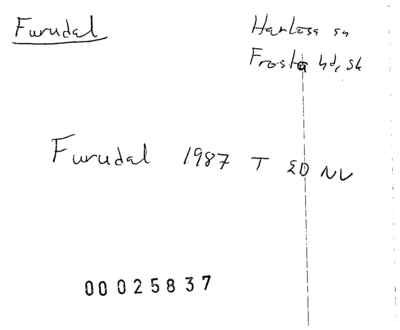 Furudal
Harlösa sn
Frosta hd, Sk
Furudal 1987 T 20 NV
00025837